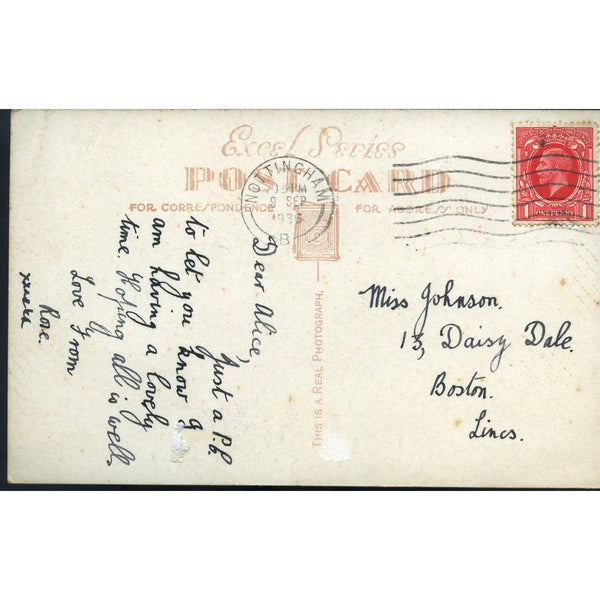 Excel Series
POST CARD
FOR CORRESPONDENCE
FOR ADDRESS ONLY
NOTTINGHAM
9 SEP
THIS IS A REAL PHOTOGRAPH.
1 ONE PENNY 1
Dear Alice,
Just a P.C.
to let you know I
am having a lovely
time. Hoping all is well,
Love from
Rose.
Miss Johnson.
13, Daisy Dale.
Boston.
Lincs.